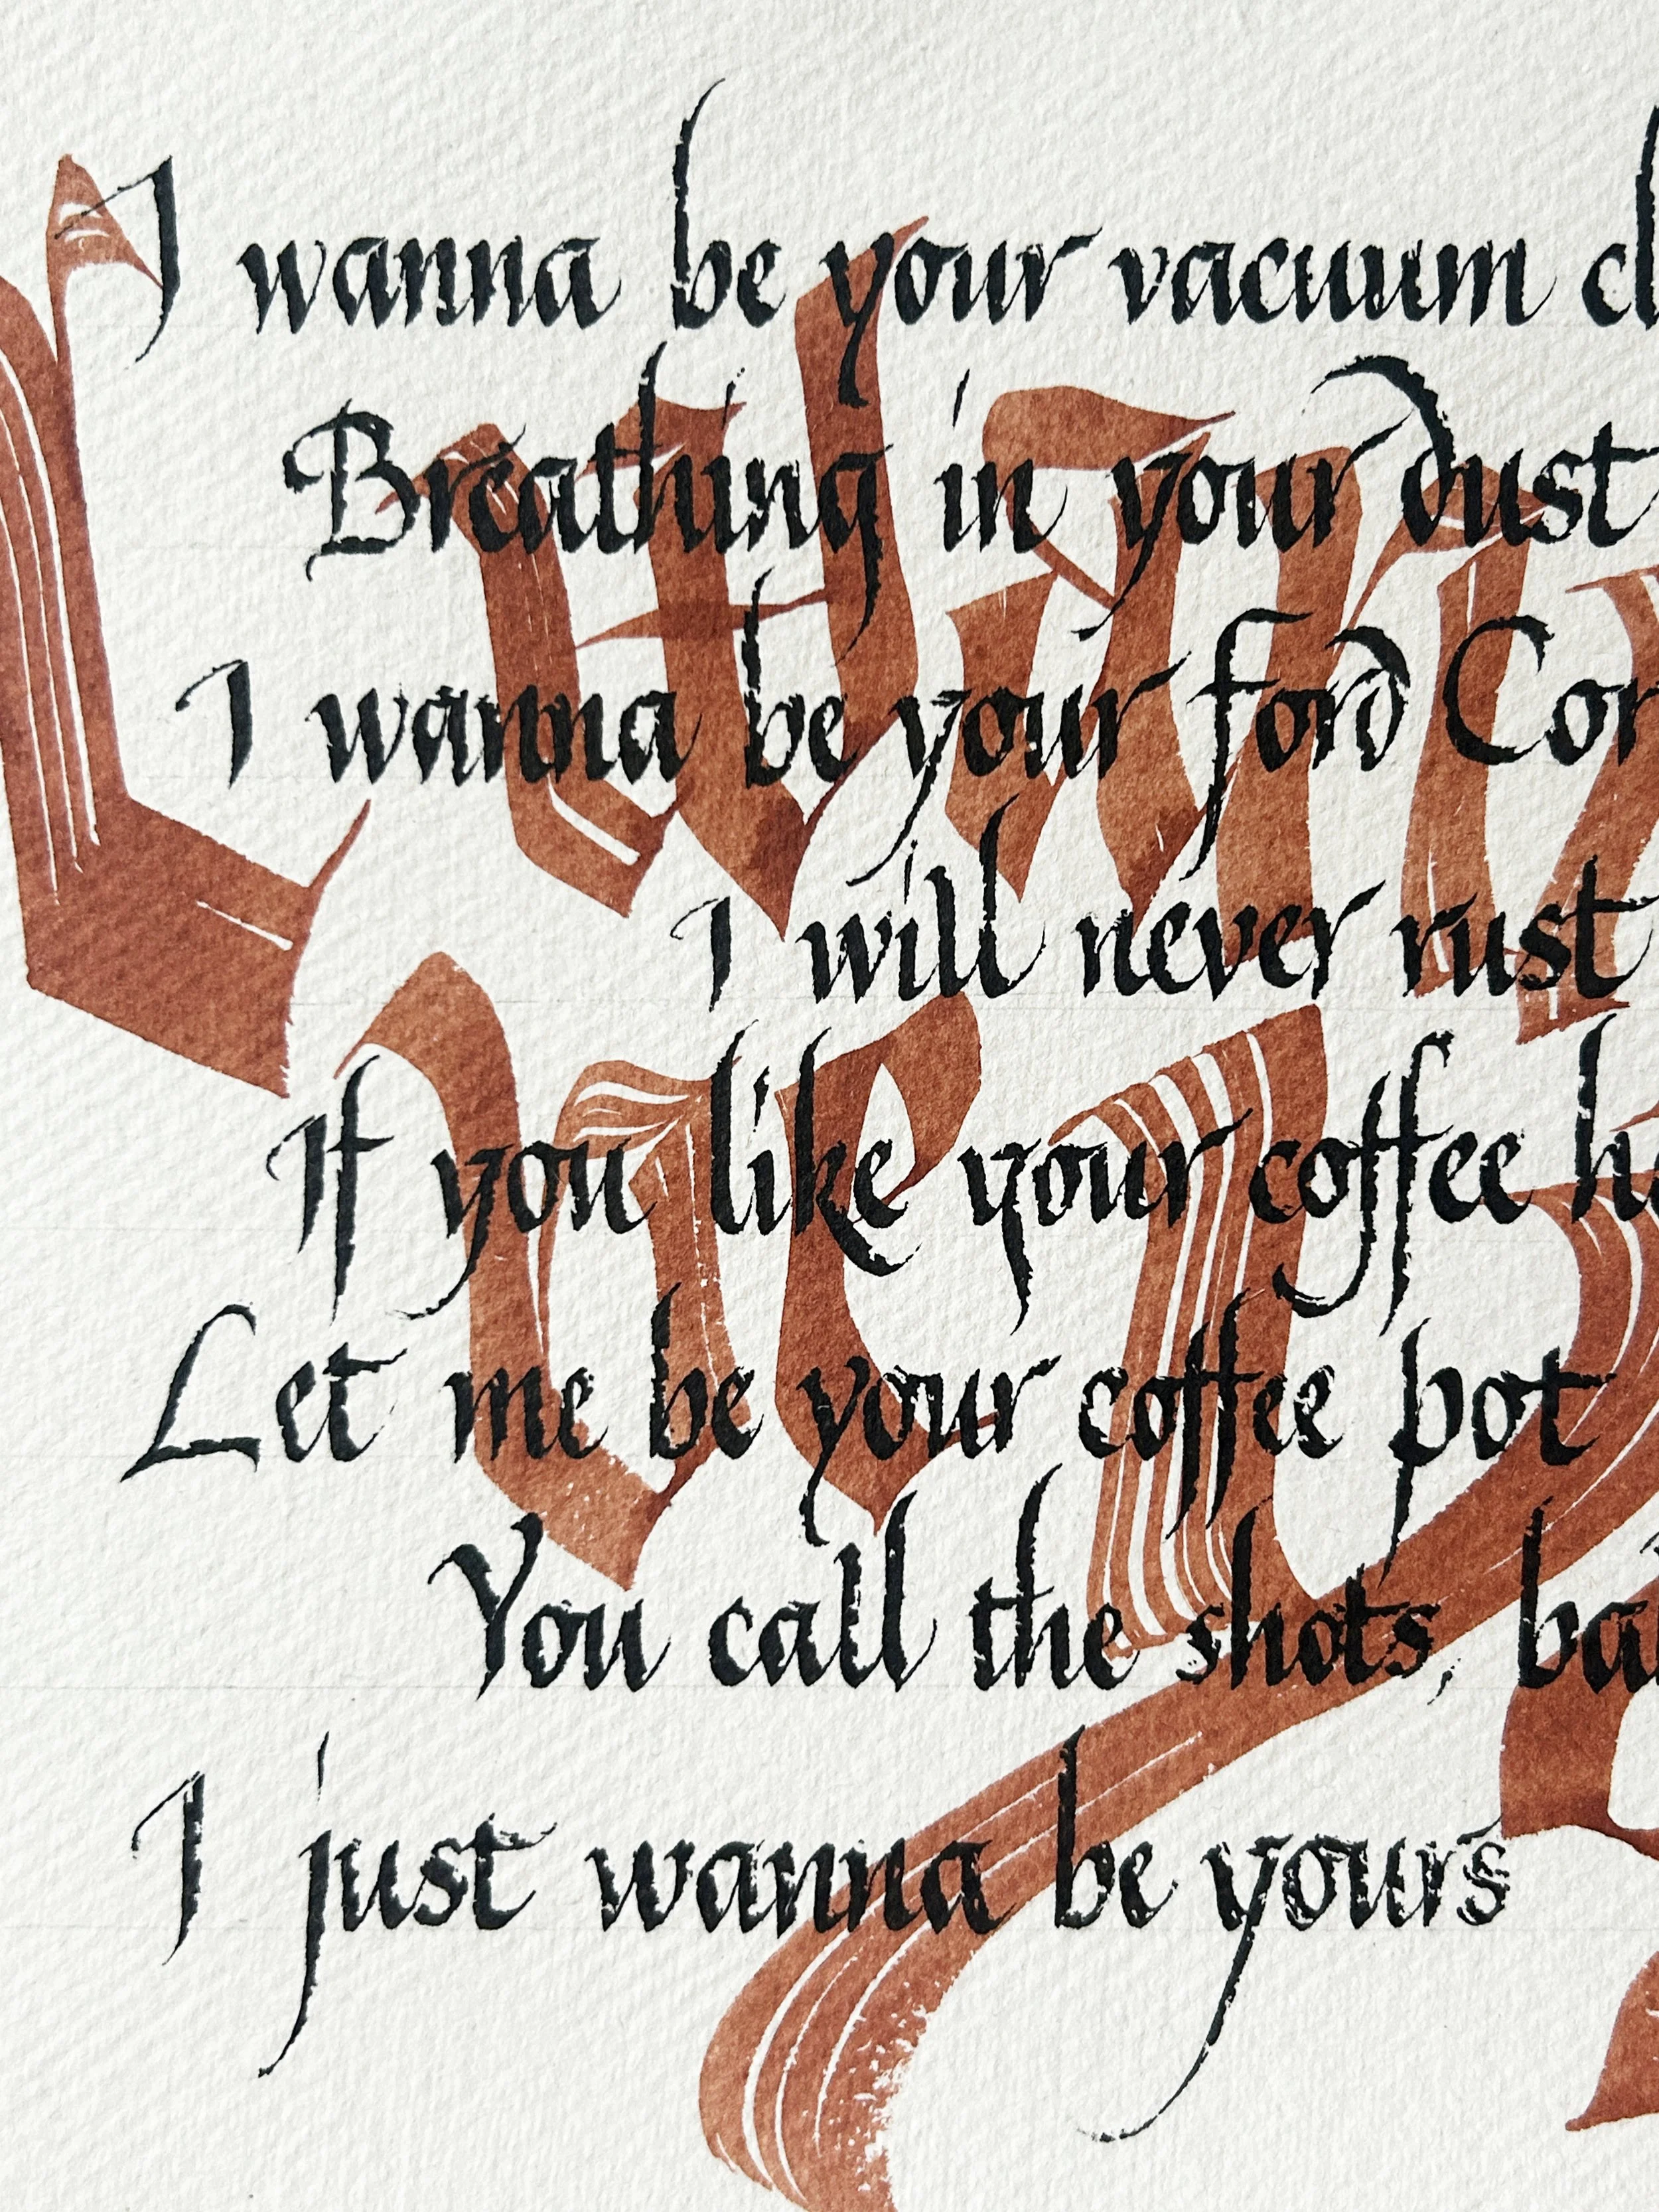 I wanna be your vacuum cl
Breathing in your dust
I wanna be your ford Cor
I will never rust
If you like your coffee h
Let me be your coffee pot
You call the shots, ba
I just wanna be yours